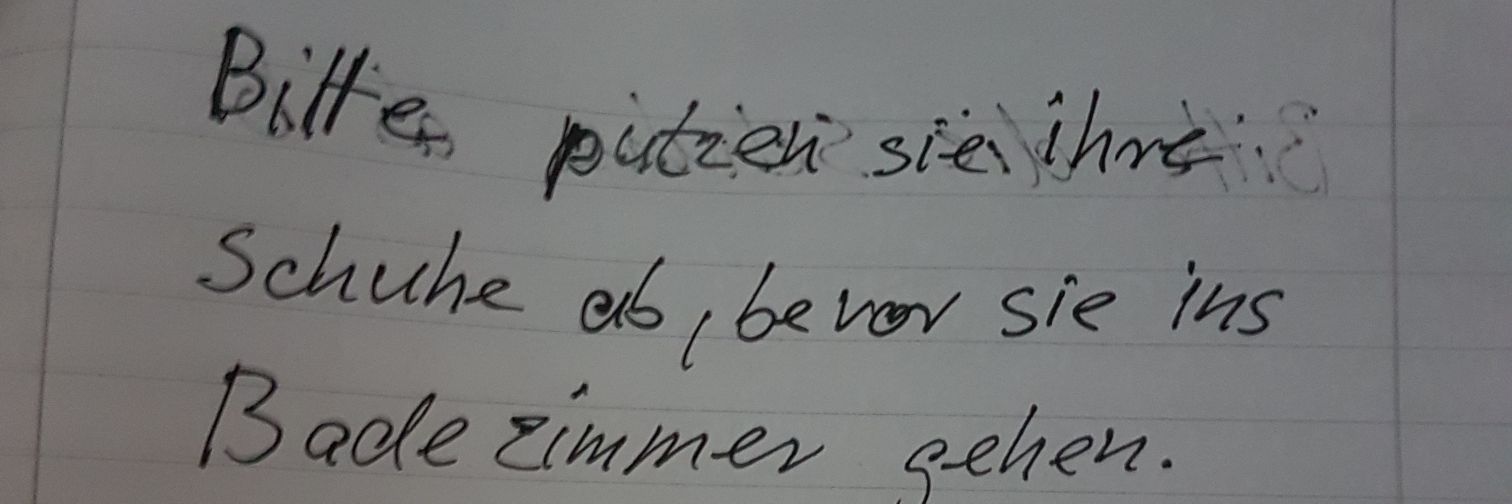 Bitte putzen sie ihre
Schuhe ab, bevor sie ins
Badezimmer gehen.